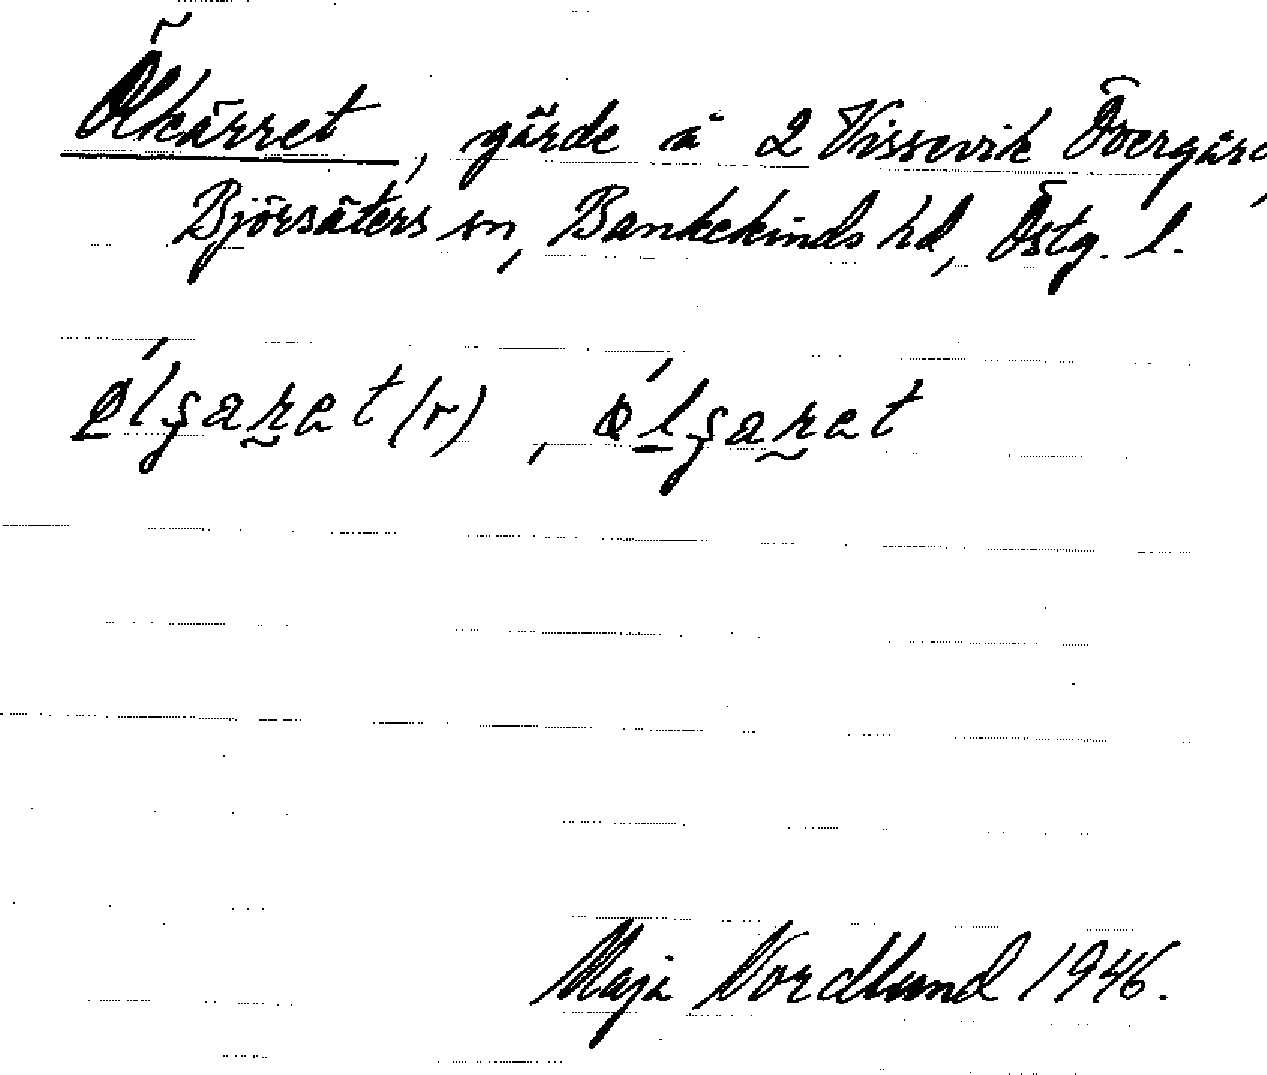 Ölkärret, gärde å 2 Vissevik Övergård,
Björsäters sn, Bankekinds hd, Östg. l.
ølgaret (r), ølgaret
Maja Nordlund 1946.